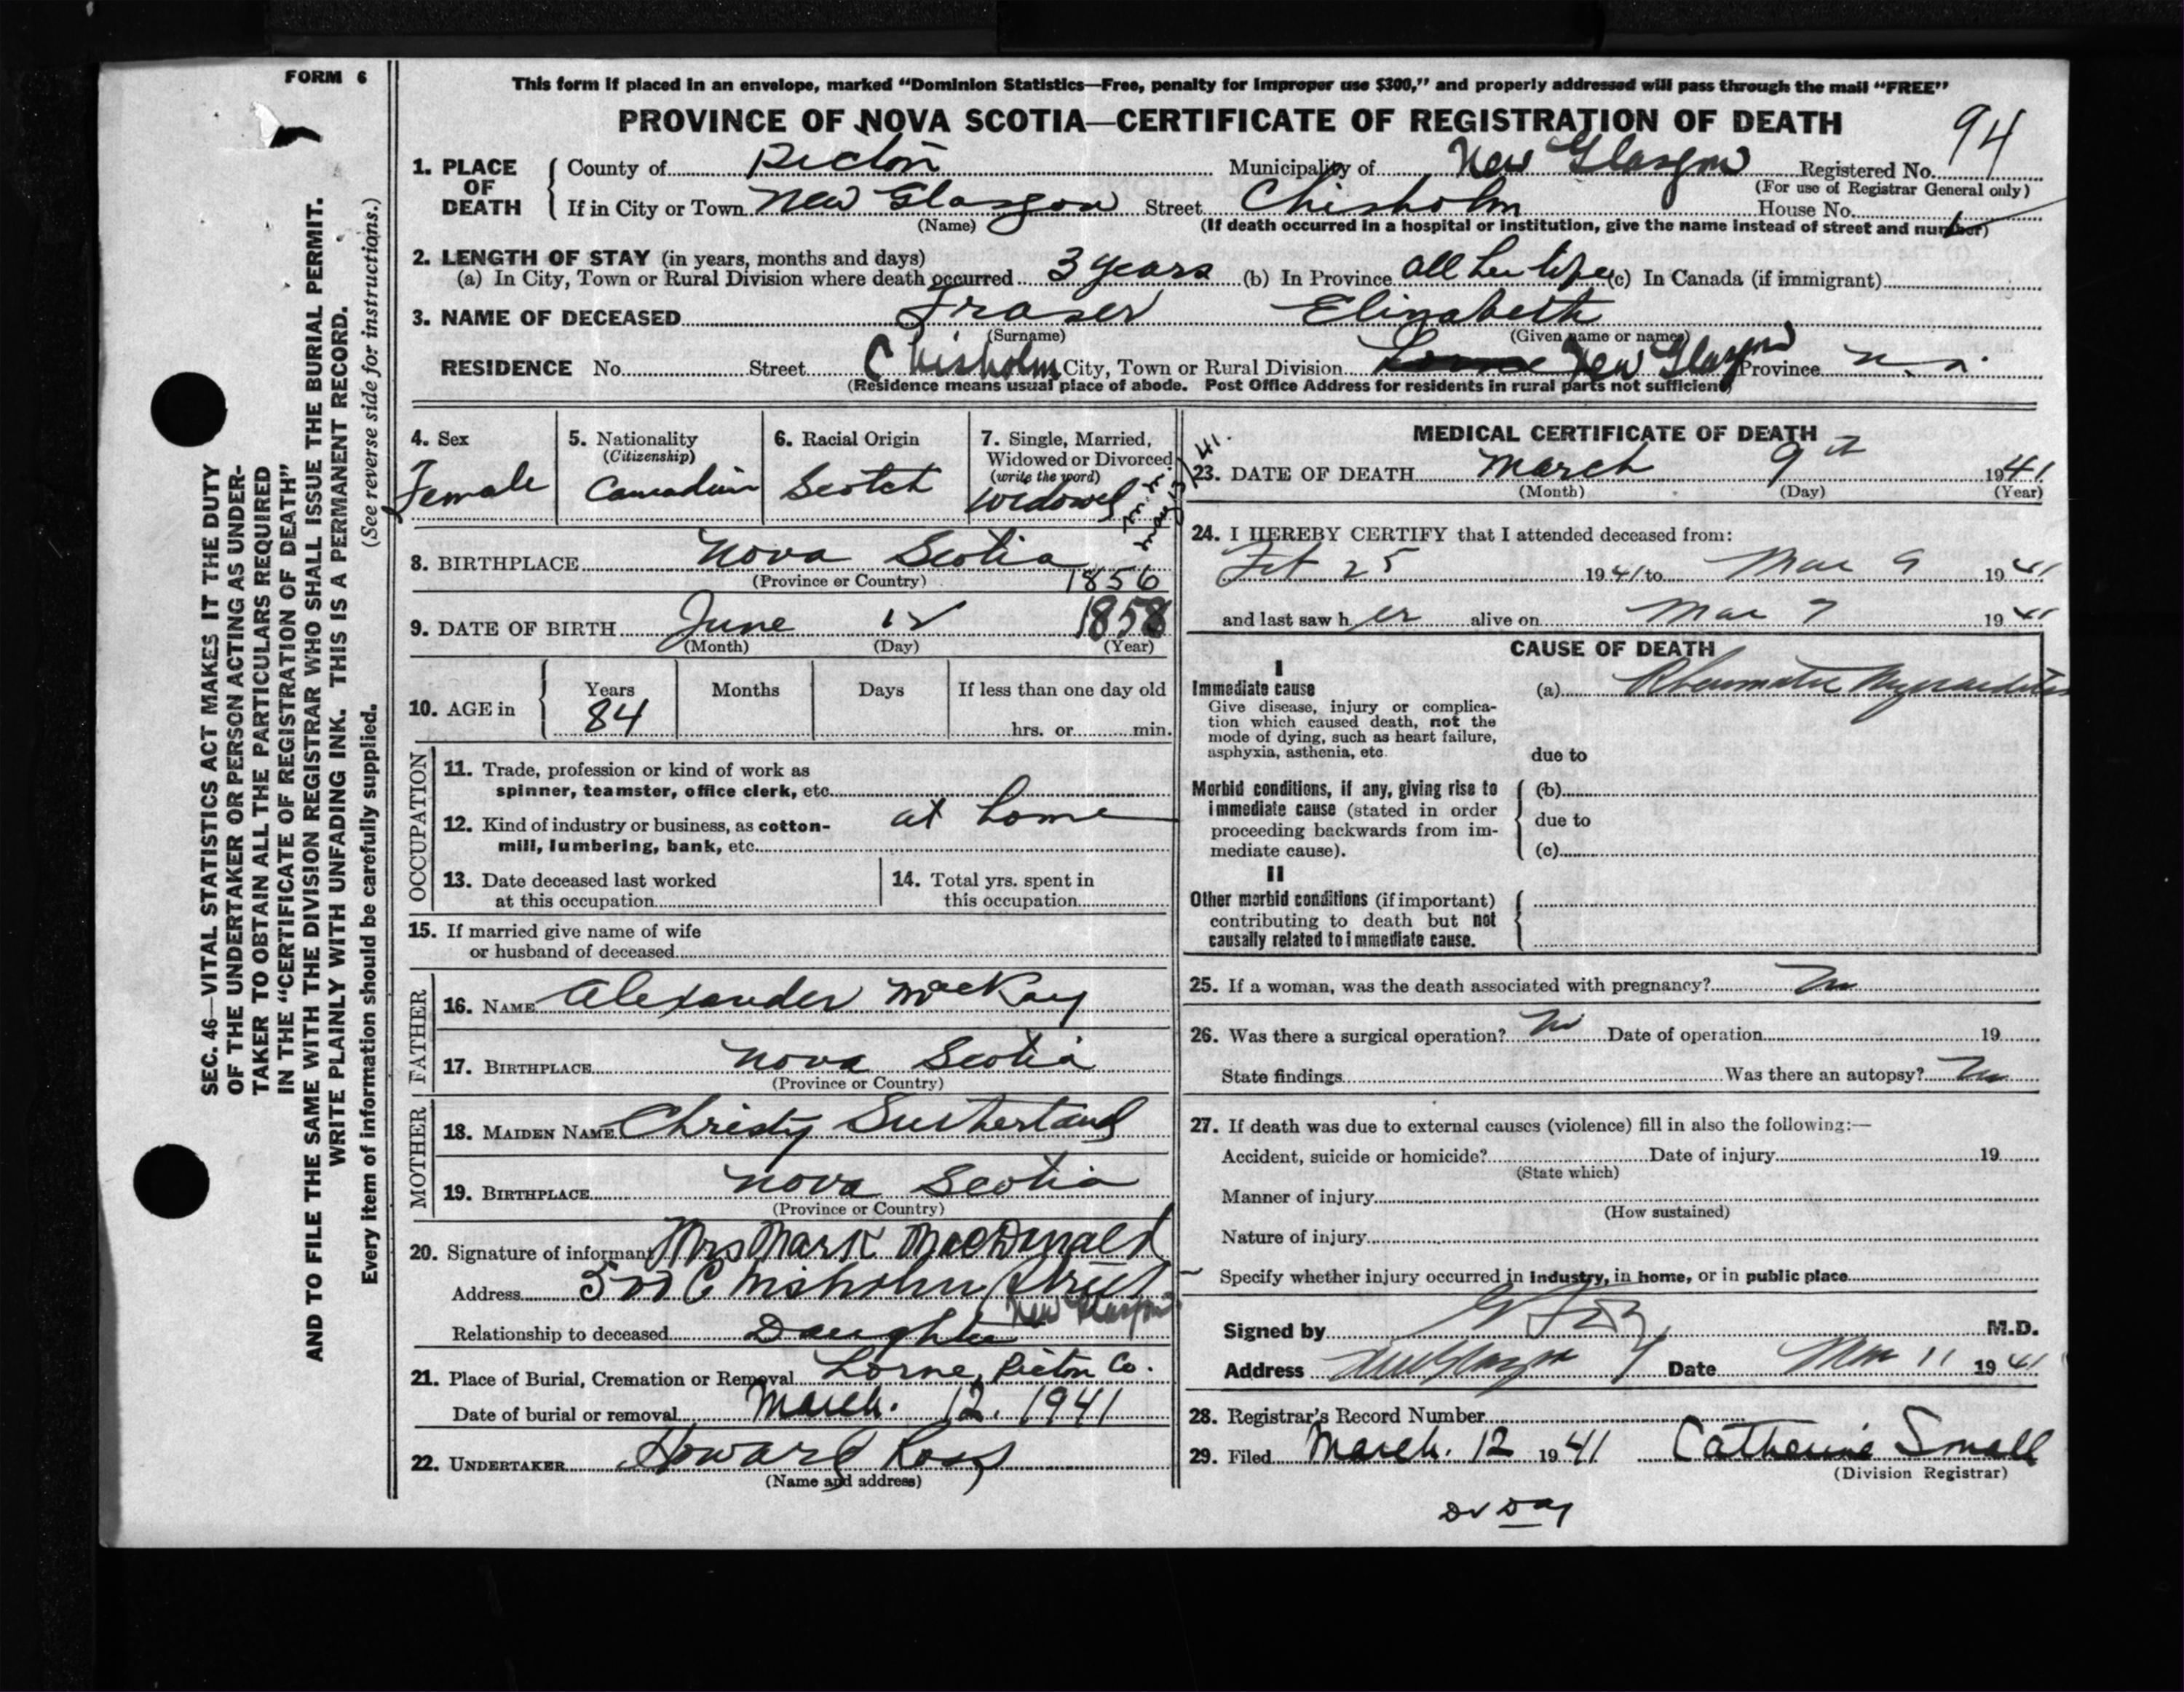 FORM 6
This form if placed in an envelope, marked “Dominion Statistics—Free, penalty for improper use $300,” and properly addressed will pass through the mail “FREE”
PROVINCE OF NOVA SCOTIA—CERTIFICATE OF REGISTRATION OF DEATH
94
1. PLACE OF DEATH
County of Pictou Municipality of New Glasgow Registered No.
(For use of Registrar General only)
If in City or Town New Glasgow Street Chisholm House No.
(Name) (If death occurred in a hospital or institution, give the name instead of street and number)
2. LENGTH OF STAY (in years, months and days)
(a) In City, Town or Rural Division where death occurred 3 years (b) In Province all her life (c) In Canada (if immigrant)
3. NAME OF DECEASED Fraser Elizabeth
(Surname) (Given name or names)
RESIDENCE No. Street Chisholm City, Town or Rural Division New Glasgow Province N.S.
(Residence means usual place of abode. Post Office Address for residents in rural parts not sufficient)
4. Sex
Female
5. Nationality
(Citizenship)
Canadian
6. Racial Origin
Scotch
7. Single, Married,
Widowed or Divorced
(write the word)
Widowed
8. BIRTHPLACE Nova Scotia
(Province or Country)
1856
9. DATE OF BIRTH June 12 1858
(Month) (Day) (Year)
10. AGE in
Years Months Days If less than one day old
84
hrs. or min.
OCCUPATION
11. Trade, profession or kind of work as
spinner, teamster, office clerk, etc.
at home
12. Kind of industry or business, as cotton-
mill, lumbering, bank, etc.
13. Date deceased last worked
at this occupation
14. Total yrs. spent in
this occupation
15. If married give name of wife
or husband of deceased
FATHER
16. NAME Alexander MacKay
17. BIRTHPLACE Nova Scotia
(Province or Country)
MOTHER
18. MAIDEN NAME Christy Sutherland
19. BIRTHPLACE Nova Scotia
(Province or Country)
20. Signature of informant Mrs Mark MacDonald
Address Chisholm Street
New Glasgow
Relationship to deceased Daughter
21. Place of Burial, Cremation or Removal Lorne, Pictou Co.
Date of burial or removal March. 12. 1941
22. UNDERTAKER Howard Ross
(Name and address)
MEDICAL CERTIFICATE OF DEATH
23. DATE OF DEATH March 9th 1941
(Month) (Day) (Year)
24. I HEREBY CERTIFY that I attended deceased from:
Feb 25 1941 to Mar 9 1941
and last saw her alive on Mar 7 1941
CAUSE OF DEATH
I
Immediate cause
Give disease, injury or complica-
tion which caused death, not the
mode of dying, such as heart failure,
asphyxia, asthenia, etc.
(a) Rheumatic Myocarditis
due to
Morbid conditions, if any, giving rise to
immediate cause (stated in order
proceeding backwards from im-
mediate cause).
(b)
due to
(c)
II
Other morbid conditions (if important)
contributing to death but not
causally related to immediate cause.
25. If a woman, was the death associated with pregnancy? No
26. Was there a surgical operation? No Date of operation 19
State findings Was there an autopsy? No
27. If death was due to external causes (violence) fill in also the following:—
Accident, suicide or homicide? Date of injury 19
(State which)
Manner of injury
(How sustained)
Nature of injury
Specify whether injury occurred in industry, in home, or in public place
Signed by M.D.
Address New Glasgow Date Mar 11 1941
28. Registrar's Record Number
29. Filed March. 12 1941 Catherine Small
(Division Registrar)
Dr Day
SEC. 46—VITAL STATISTICS ACT MAKES IT THE DUTY
OF THE UNDERTAKER OR PERSON ACTING AS UNDER-
TAKER TO OBTAIN ALL THE PARTICULARS REQUIRED
IN THE “CERTIFICATE OF REGISTRATION OF DEATH”
AND TO FILE THE SAME WITH THE DIVISION REGISTRAR WHO SHALL ISSUE THE BURIAL PERMIT.
WRITE PLAINLY WITH UNFADING INK. THIS IS A PERMANENT RECORD.
Every item of information should be carefully supplied. (See reverse side for instructions.)